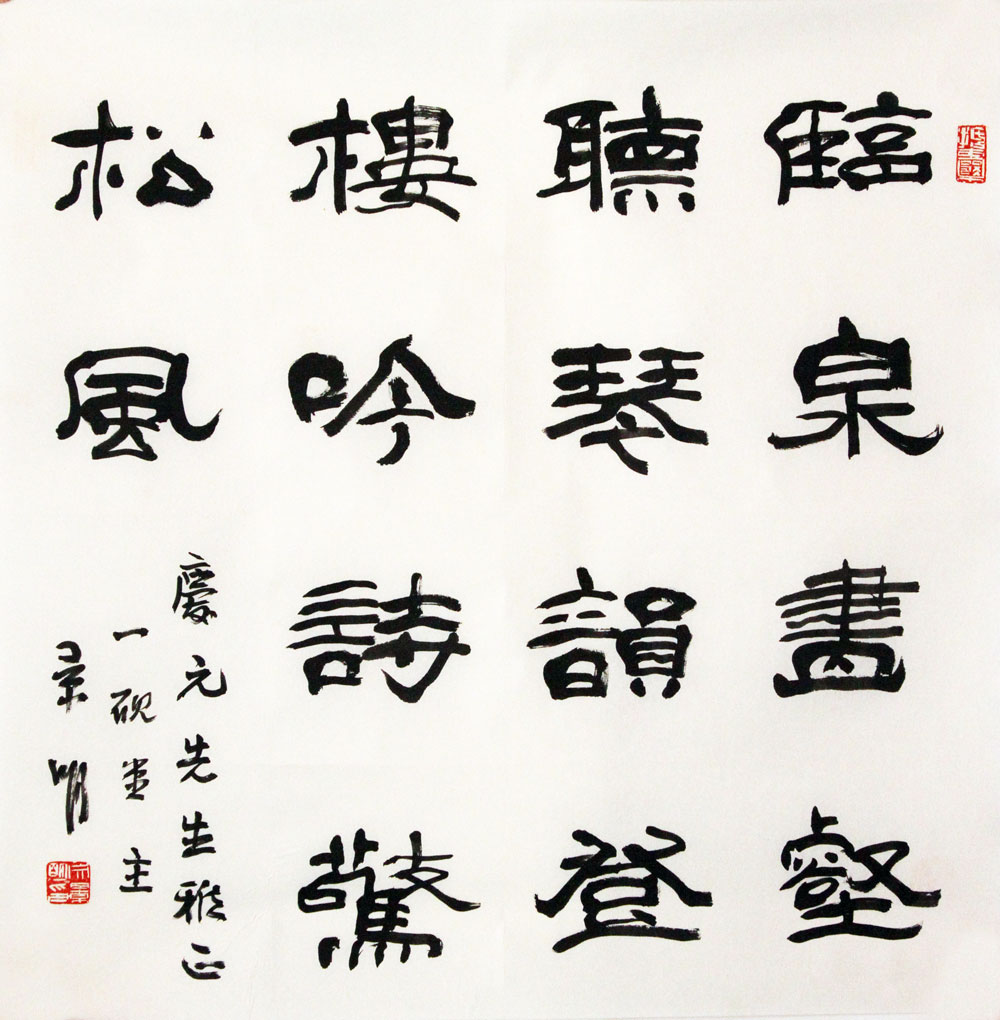 臨泉畵壑
聽琴韻登
樓吟詩驚
松風
慶元先生雅正
一硯堂主
景明